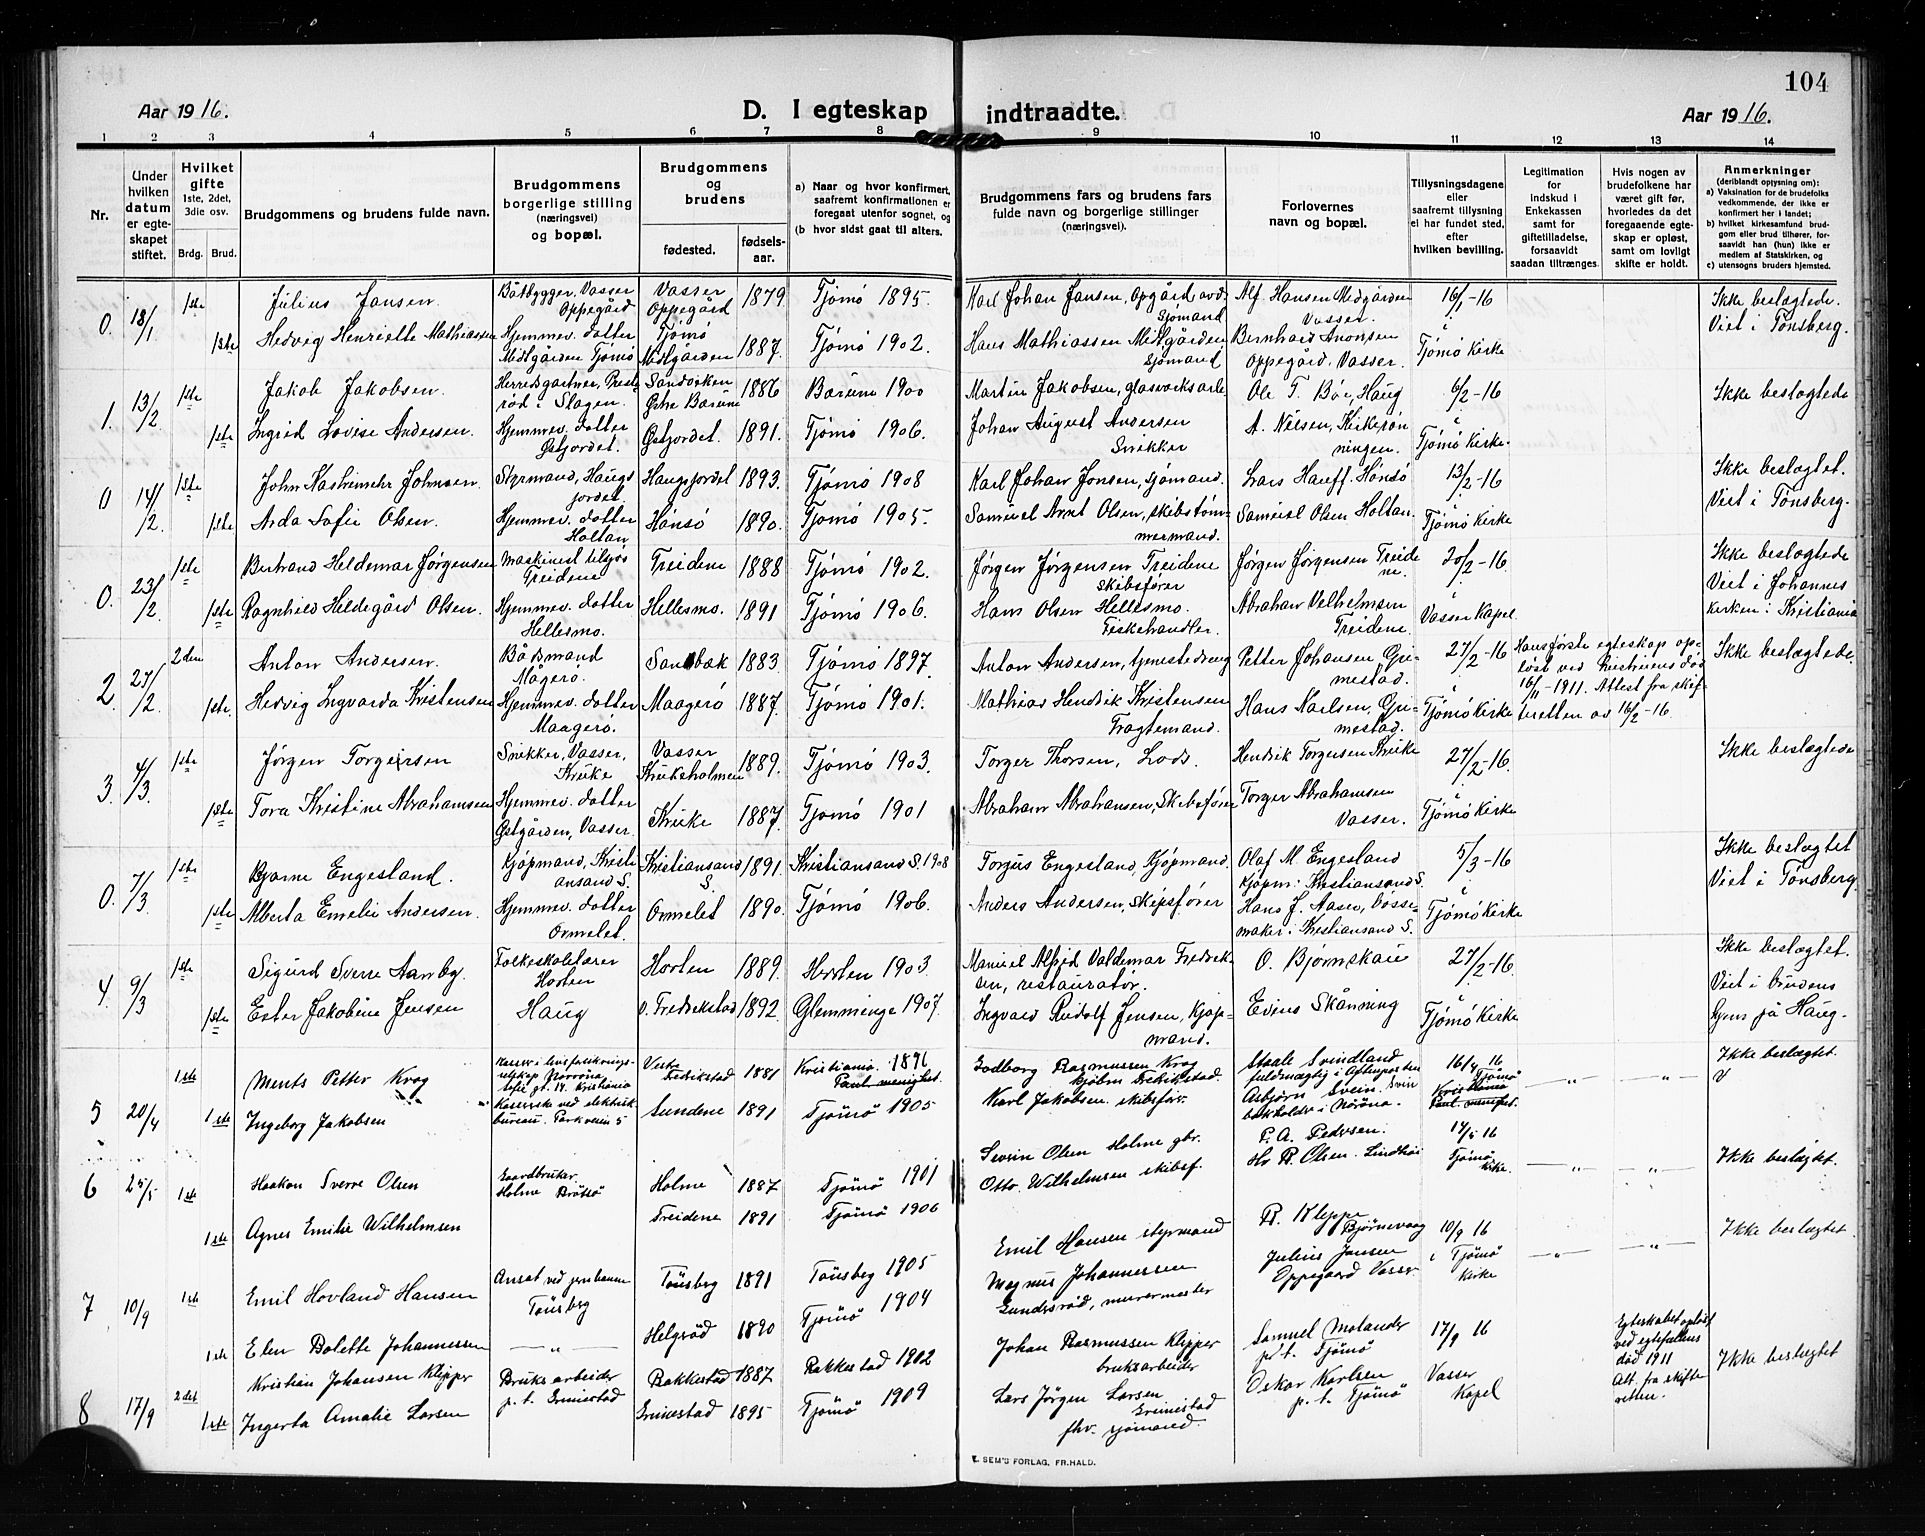 104
Aar 1916.
D. I egteskap indtraadte.
Aar 1916.
1 2 3 4 5 6 7 8 9 10 11 12 13 14
Nr.
Under hvilken datum er egteskapet stiftet.
Hvilket gifte 1ste, 2det, 3die osv.
Brdg. Brud.
Brudgommens og brudens fulde navn.
Brudgommens borgerlige stilling (næringsvei) og bopæl.
Brudgommens og brudens
fødested. fødselsaar.
a) Naar og hvor konfirmert, saafremt konfirmationen er foregaat utenfor sognet, og
(b hvor sidst gaat til alters.
Brudgommens fars og brudens fars fulde navn og borgerlige stillinger (næringsvei).
Forlovernes navn og bopæl.
Tillysningsdagene eller saafremt tillysning ei har fundet sted, efter hvilken bevilling.
Legitimation for Indskud i Enkekassen samt for giftetilladelse, forsaavidt saadan tiltrænges
Hvis nogen av brudefolkene har været gift før, hvorledes da det foregaaende egteskap er opløst, samt om lovligt skifte er holdt.
Anmerkninger
(deriblandt oplysning om):
a) Vaksination for de brudefolks vedkommende, der ikke er konfirmert her i landet;
b) hvilket kirkesamfund brudgom eller brud tilhører, forsaavidt han (hun) ikke er medlem av Statskirken, og
c) utensogns bruders hjemsted.
0. 18/1 1ste Julius Jansen. Båtbygger, Vasser Oppegård Vasser Oppegård 1879 Tjømø 1895. Karl Johan Jansen, Opgård avd. Sjømand Alf Hansen Midgården Vasser. 16/1-16 Ikke beslegtede.
1ste Hedvig Henriette Mathiassen Hjemmev. dotter Midtgården Tjømø Tjømø Midtgården 1887. Tjømø 1902. Hans Mathiassen Midtgården Sjømand Bernhard Anonsen Oppegård. Vasser. i Tjømø Kirke Viet i Tønsberg.
1. 13/2 1ste Jakob Jakobsen. Herredsgartner, Presterød i Slagen. Sandviken Østre Bærum 1886 Bærum 1900 Martin Jakobsen, glasverksarb. Ole T. Bøe, Haug 6/2-16 Ikke beslegtede
1ste Ingrid Lovise Andersen. Hjemmev. dotter Østjordet. Østjordet. 1891. Tjømø 1906. Johan August Andersen Snikker A. Nilsen, Kirkerønningen. i Tjømø Kirke.
0 14/2 1ste John Kashimehr Johnsen. Styrmand, Haugsjordet. Haugsjordet 1893. Tjømø 1908 Karl Johan Jonsen, sjømand. Lars Hauff. Hønsø 13/2-16 Ikke beslegtet.
1ste Anda Sofie Olsen. Hjemmev. dotter Holtan Hønsø 1890. Tjømø 1905. Samuel Arnt Olsen, skibstømmermand. Samuel Olsen Holtan. i Tjømø Kirke Viet i Tønsberg.
0. 23/2 1ste Bertrand Heldemar Jørgensen Maskinist tilsjøs Treidene Treidene 1888 Tjømø 1902. Jørgen Jørgensen Treidene skibsfører Jørgen Jørgensen Treidene. 20/2-16. Ikke beslegtede
1ste Ragnhild Heldegård Olsen. Hjemmev. dotter Hellesmo. Hellesmo. 1891 Tjømø 1906. Hans Olsen Hellesmo. Fiskehandler. Abraham Velhelmsen Treidene. i Vasser Kapel. Viet i Johannes kirken i Kristiania
2. 27/2 2den Anton Andersen. Båtsmand Mågerø. Sandbæk 1883 Tjømø 1897. Anton Andersen, tjenestedreng Petter Johansen Grimestad. 27/2-16 Hans første egteskap opløst ved hustruens død 16/11-1911. Attest fra skifteretten av 16/2-16. Ikke beslegtede.
1ste. Hedvig Ingvarda Kristensen Hjemmev. dotter Maagerø. Maagerø 1887. Tjømø 1901. Mathias Hendrik Kristensen Fragtemand. Hans Karlsen, Grimestad. i Tjømø Kirke
3. 4/3. 1ste Jørgen Torgersen Snikker, Vasser, Kruke Vasser Krukeholmen 1889. Tjømø 1903. Torger Thorsen, Lods. Hendrik Torgersen Kruke 27/2-16. Ikke beslegtede
1ste Tora Kristine Abrahamsen Hjemmev. dotter Østgården, Vasser. Kruke 1887. Tjømø 1901 Abraham Abrahamsen, Skibsfører Torger Abrahamsen Vasser. i Tjømø Kirke
0. 7/3 1ste Bjarne Engesland. Kjøpmand, Kristiansand S. Kristiansand S. 1891. Kristiansand S. 1908 Torgus Engesland, Kjøpmand. Olaf M. Engesland Kjøpm: Kristiansand S. 5/3-16 Ikke beslegtet
1ste Alberta Emelie Andersen. Hjemmev. dotter Ormelet. Ormelet 1890. Tjømø 1906. Anders Andersen, skipsfører Hans J. Aasen, bøssemaker i Kristiansand S. i Tjømø Kirke Viet i Tønsberg.
4. 9/3 1ste Sigurd Sverre Aamby. Folkeskolelærer Horten Horten 1889. Horten 1903. Manuel Alfred Valdemar Fredriksen, restauratør. O. Bjørnskau 27/2-16. Ikke beslegtet.
1ste Ester Jakobine Jensen Haug O. Fredrikstad 1892. Glemminge 1907. Ingvald Rudolf Jensen, Kjøpmand. Evins Skånning i Tjømø Kirke Viet i brudens hjem på Haug.
5 20/4 1ste Ments Petter Krog Kasser i livsforsikringsselskap Norrøna, Sofie gt. 14. Kristiania Vestr. Fredrikstad 1881 Kristiania. 1896 Paul. menighet. Godborg Rasmussen Krog kjøbm Fredrikstad. Staale Svindland fuldmægtig i Aftenposten 16/4 16 Tjømø — „ — — „ — Ikke beslegtet.
1ste Ingeborg Jakobsen Kaserske ved elektrisk bureau. Parkveien 5 Sundene 1891 Tjømø 1905 Karl Jakobsen skibsfør. Asbjørn Svein Svin bokholder i Norøna. Kristiania Paul. menighet.
6 25/5 1ste Haakon Sverre Olsen Gaardbruker. Holme Brøtsø Holme 1887 Tjømø 1901 Severin Olsen Holme gbr. P. A. Pedersen. 14/5 16 Tjømø kirke. — „ — — „ — Ikke beslegtet.
1ste Agnes Emilie Wilhelmsen Treidene 1891 Tjømø 1906 Otto. Wilhelmsen skibsf. Hr R. Olsen. Lindhøi
7 10/9 1ste Emil Hovland Hansen Ansat ved jernbanen Tønsberg Tønsberg 1891 Tønsberg 1905 Emil Hansen styrmand R. Kleppe Bjørnevaag 10/9 16 i Tjømø Kirke — „ — — „ — Ikke beslegtet.
1ste Elen Bolette Johannessen — „ — Helgrød 1890 Tjømø 1904 Magnus Johannessen Gundersrød, murermester Julius Jansen Oppegaard Vasser
8 17/9 2det Kristian Johansen Klepper Bruksarbeider p.t. Grimestad Rakkestad 1887 Rakkestad 1902 Johan Rasmussen Klepper bruksarbeider Samuel Molander p.t. Tjømø 17/9 16 Vasser Kapel Egteskabet opløst ved egtefællens død 1911 Att. fra skifteretten. Ikke beslegtet
1ste Ingerta Amalie Larsen Grimestad 1895 Tjømø 1909 Lars Jørgen Larsen Grimestad fhv. sjømand. Oskar Karlsen p.t. Tjømø
E. SEM'S FORLAG, FR.HALD.